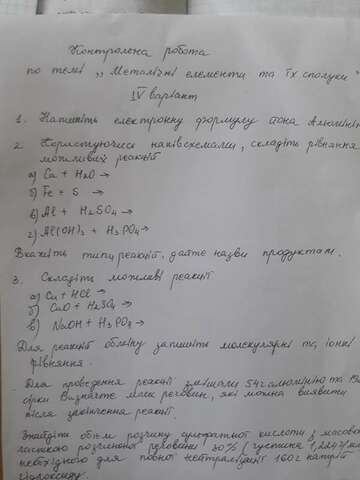 Контрольна робота
по темі „Металічні елементи та їх сполуки"
IV варіант
1. Напишіть електронну формулу йона Алюмінію
2. Користуючися напівсхемами, складіть рівняння
можливих реакцій
а) Ca + H2O →
б) Fe + S →
в) Al + H2SO4 →
г) Al(OH)3 + H3PO4 →
Вкажіть типи реакцій, дайте назви продуктам.
3. Складіть можливі реакції
а) Cu + HCl →
б) CuO + H2SO4 →
в) NaOH + H3PO4 →
Для реакцій обміну запишіть молекулярні та йонні
рівняння.
Для проведення реакції змішали 54г алюмінію та
сірки Визначте маси речовин, які можна виявити
після закінчення реакції.
Знайдіть об'єм розчину сульфатної кислоти з масовою
часткою розчиненої речовини 30% (густина
необхідного для повної нейтралізації 160г натрій
гідроксиду.